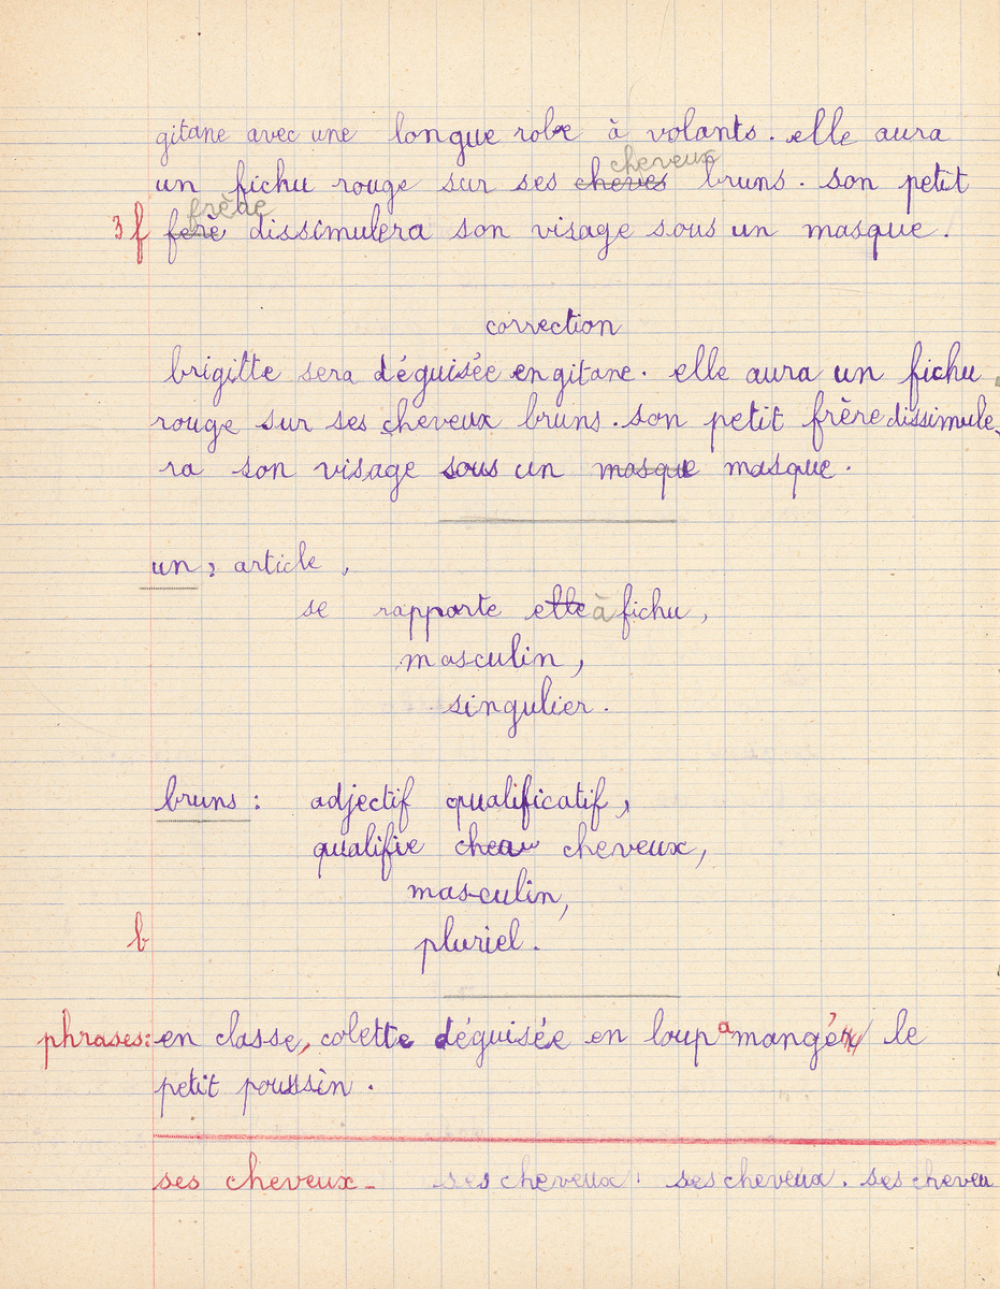 gitane avec une longue robe à volants. elle aura
cheveux
un fichu rouge sur ses cheves bruns. son petit
frère
3 f ferè dissimulera son visage sous un masque.
correction
brigitte sera déguisée en gitane. elle aura un fichu
rouge sur ses cheveux bruns. son petit frère dissimule-
ra son visage sous un masque masque.
un, article,
se rapporte elle à fichu,
masculin,
singulier.
bruns : adjectif qualificatif,
qualifie cheau cheveux,
masculin,
b pluriel.
phrases: en classe, colette déguisée en loup a mangé le
petit poussin.
ses cheveux - ses cheveux. ses cheveux. ses cheveu